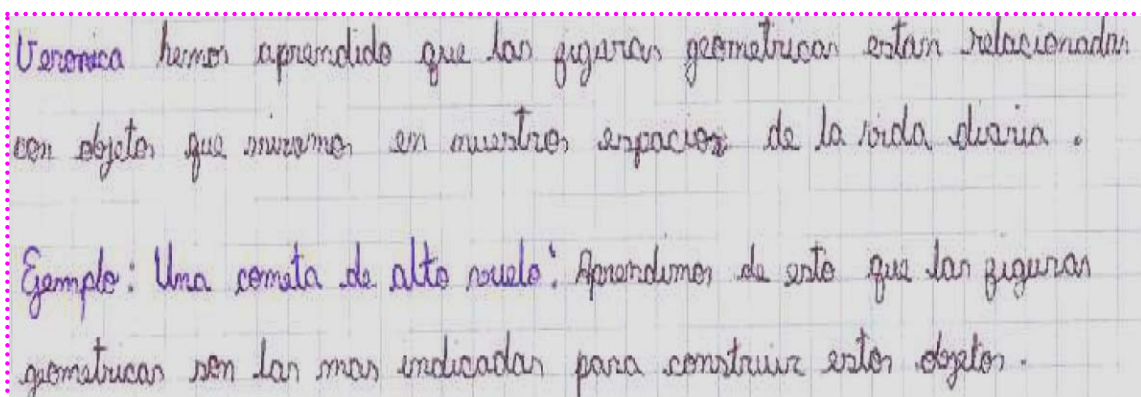 Veronica hemos aprendido que las figuras geometricas estan relacionadas
con objetos que miramos en nuestros espacios de la vida diaria.
Ejemplo: Una cometa de alto vuelo: Aprendimos de esto que las figuras
geometricas son las mas indicadas para construir estos objetos.